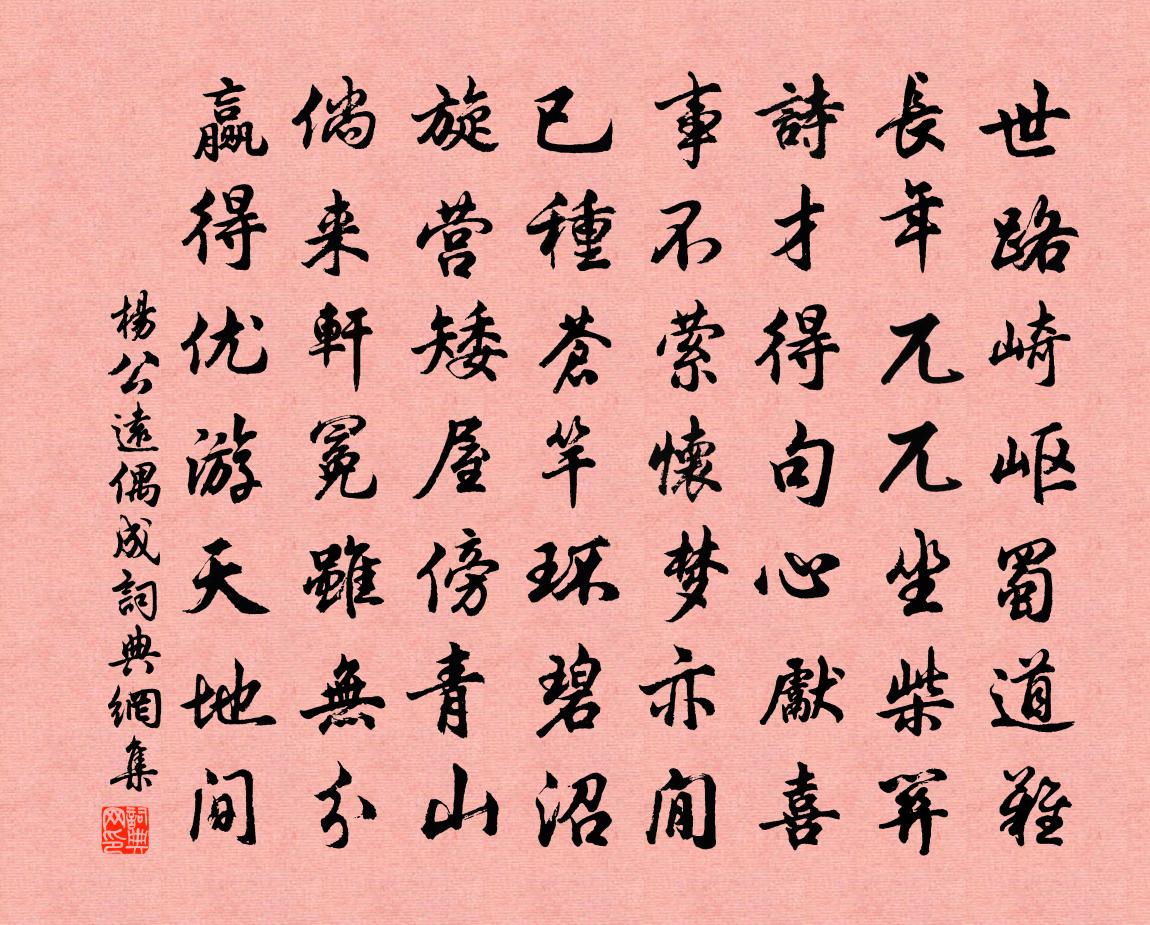 世路崎岖蜀道難
長年兀兀坐柴関
詩才得句心獻喜
事不萦懷梦亦閒
已種蒼竿环碧沼
旋营矮屋傍青山
倘来軒冕雖無分
赢得优游天地间
楊公遠偶成詞典網集
詞典网印